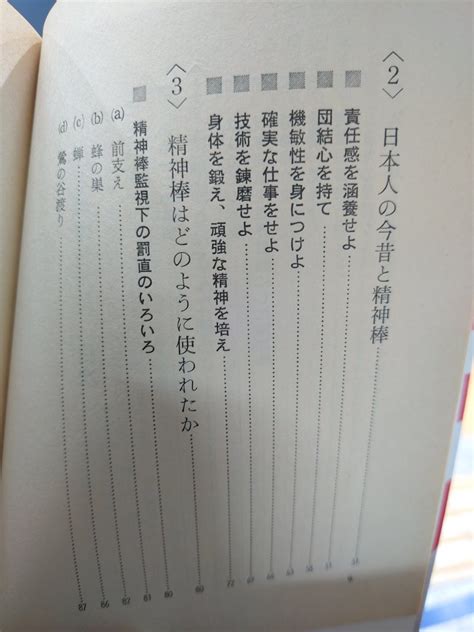 〈2〉 日本人の今昔と精神棒
■ 責任感を涵養せよ
■ 団結心を持て
■ 機敏性を身につけよ
■ 確実な仕事をせよ
■ 技術を錬磨せよ
■ 身体を鍛え、頑強な精神を培え 72
〈3〉 精神棒はどのように使われたか 80
■ 精神棒監視下の罰直のいろいろ 80
(a) 前支え 81
(b) 蜂の巣 82
(c) 蝉 86
(d) 鶯の谷渡り 87